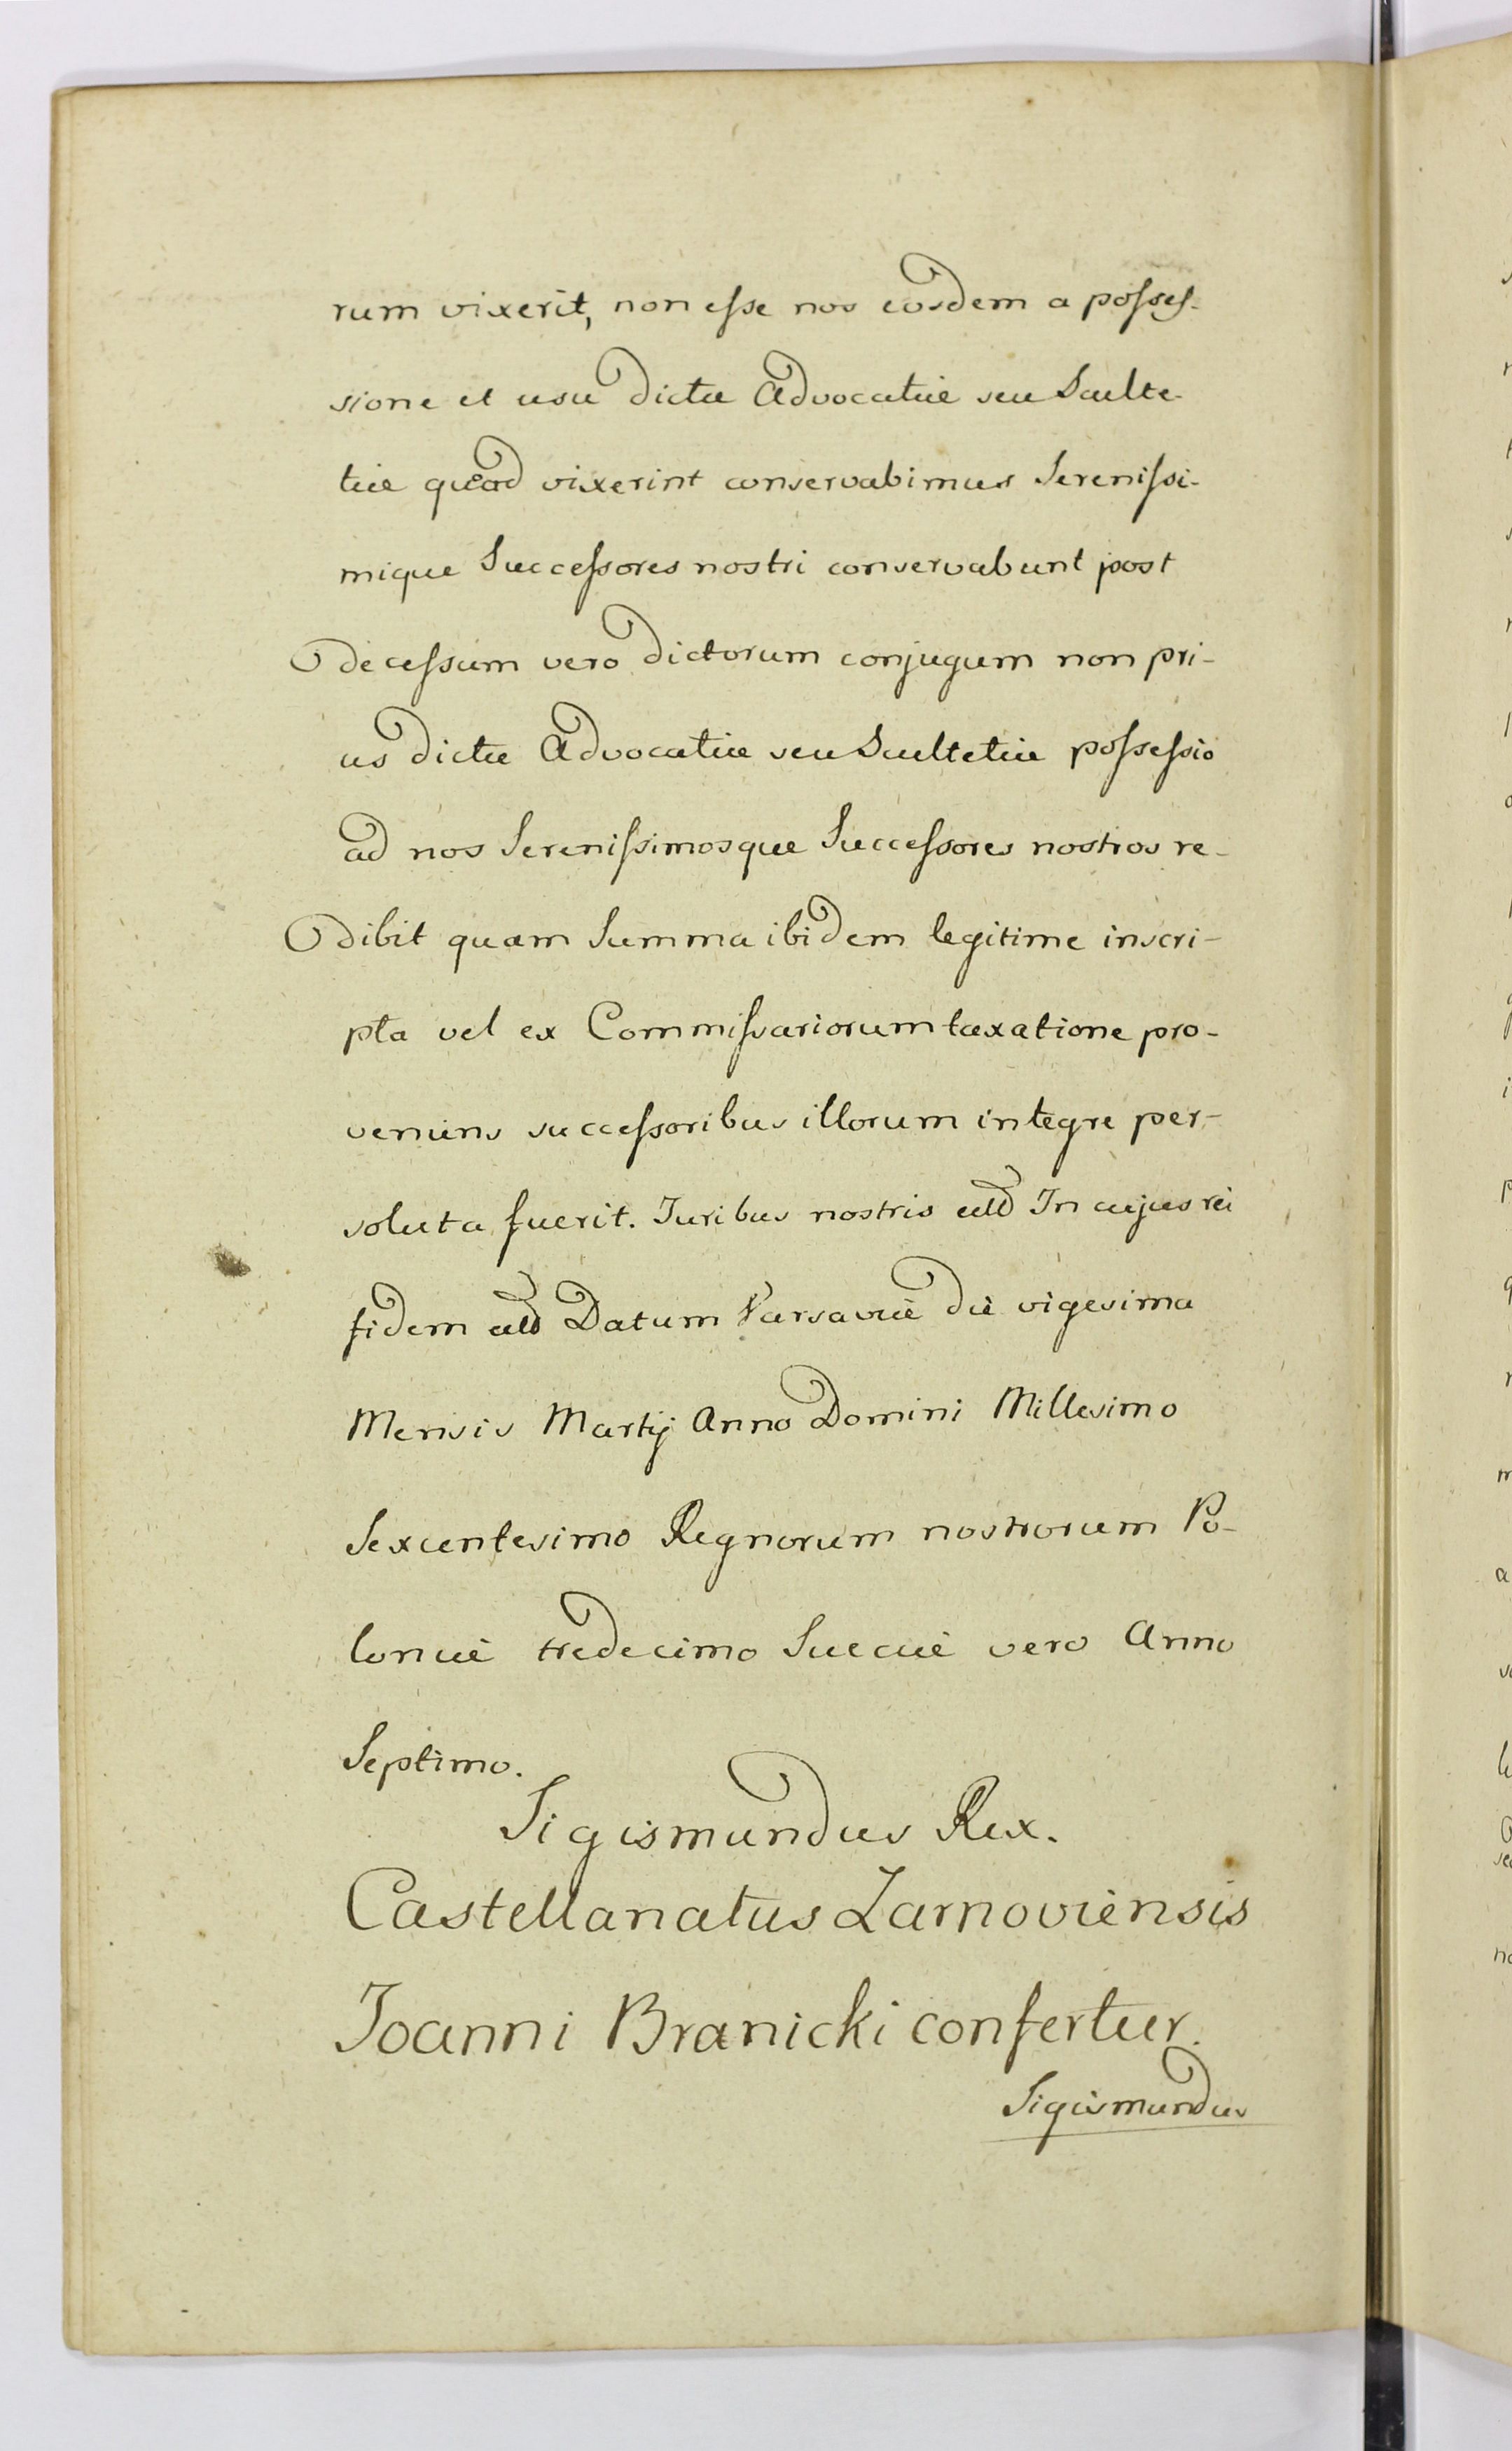 rum vixerit, non esse nos eosdem a posses-
sione et usu dictæ Advocatiæ seu Sculte-
tiæ quoad vixerint conservabimus Serenissi-
mique Successores nostri conservabunt post
decessum vero dictorum conjugum non pri-
us dictæ Advocatiæ seu Scultetiæ possessio
ad nos Serenissimosque Successores nostros re-
dibit quam Summa ibidem legitime inscri-
pta vel ex Commissariorum taxatione pro-
veniens successoribus illorum integre per-
soluta fuerit. Juribus nostris In cujus rei
fidem Datum Varsaviæ die vigesima
Mensis Martij Anno Domini Millesimo
Sexcentesimo Regnorum nostrorum Po-
loniæ tredecimo Sueciæ vero Anno
Septimo.
Sigismundus Rex.
Castellanatus Zarnoviensis
Joanni Branicki confertur.
Sigismundus